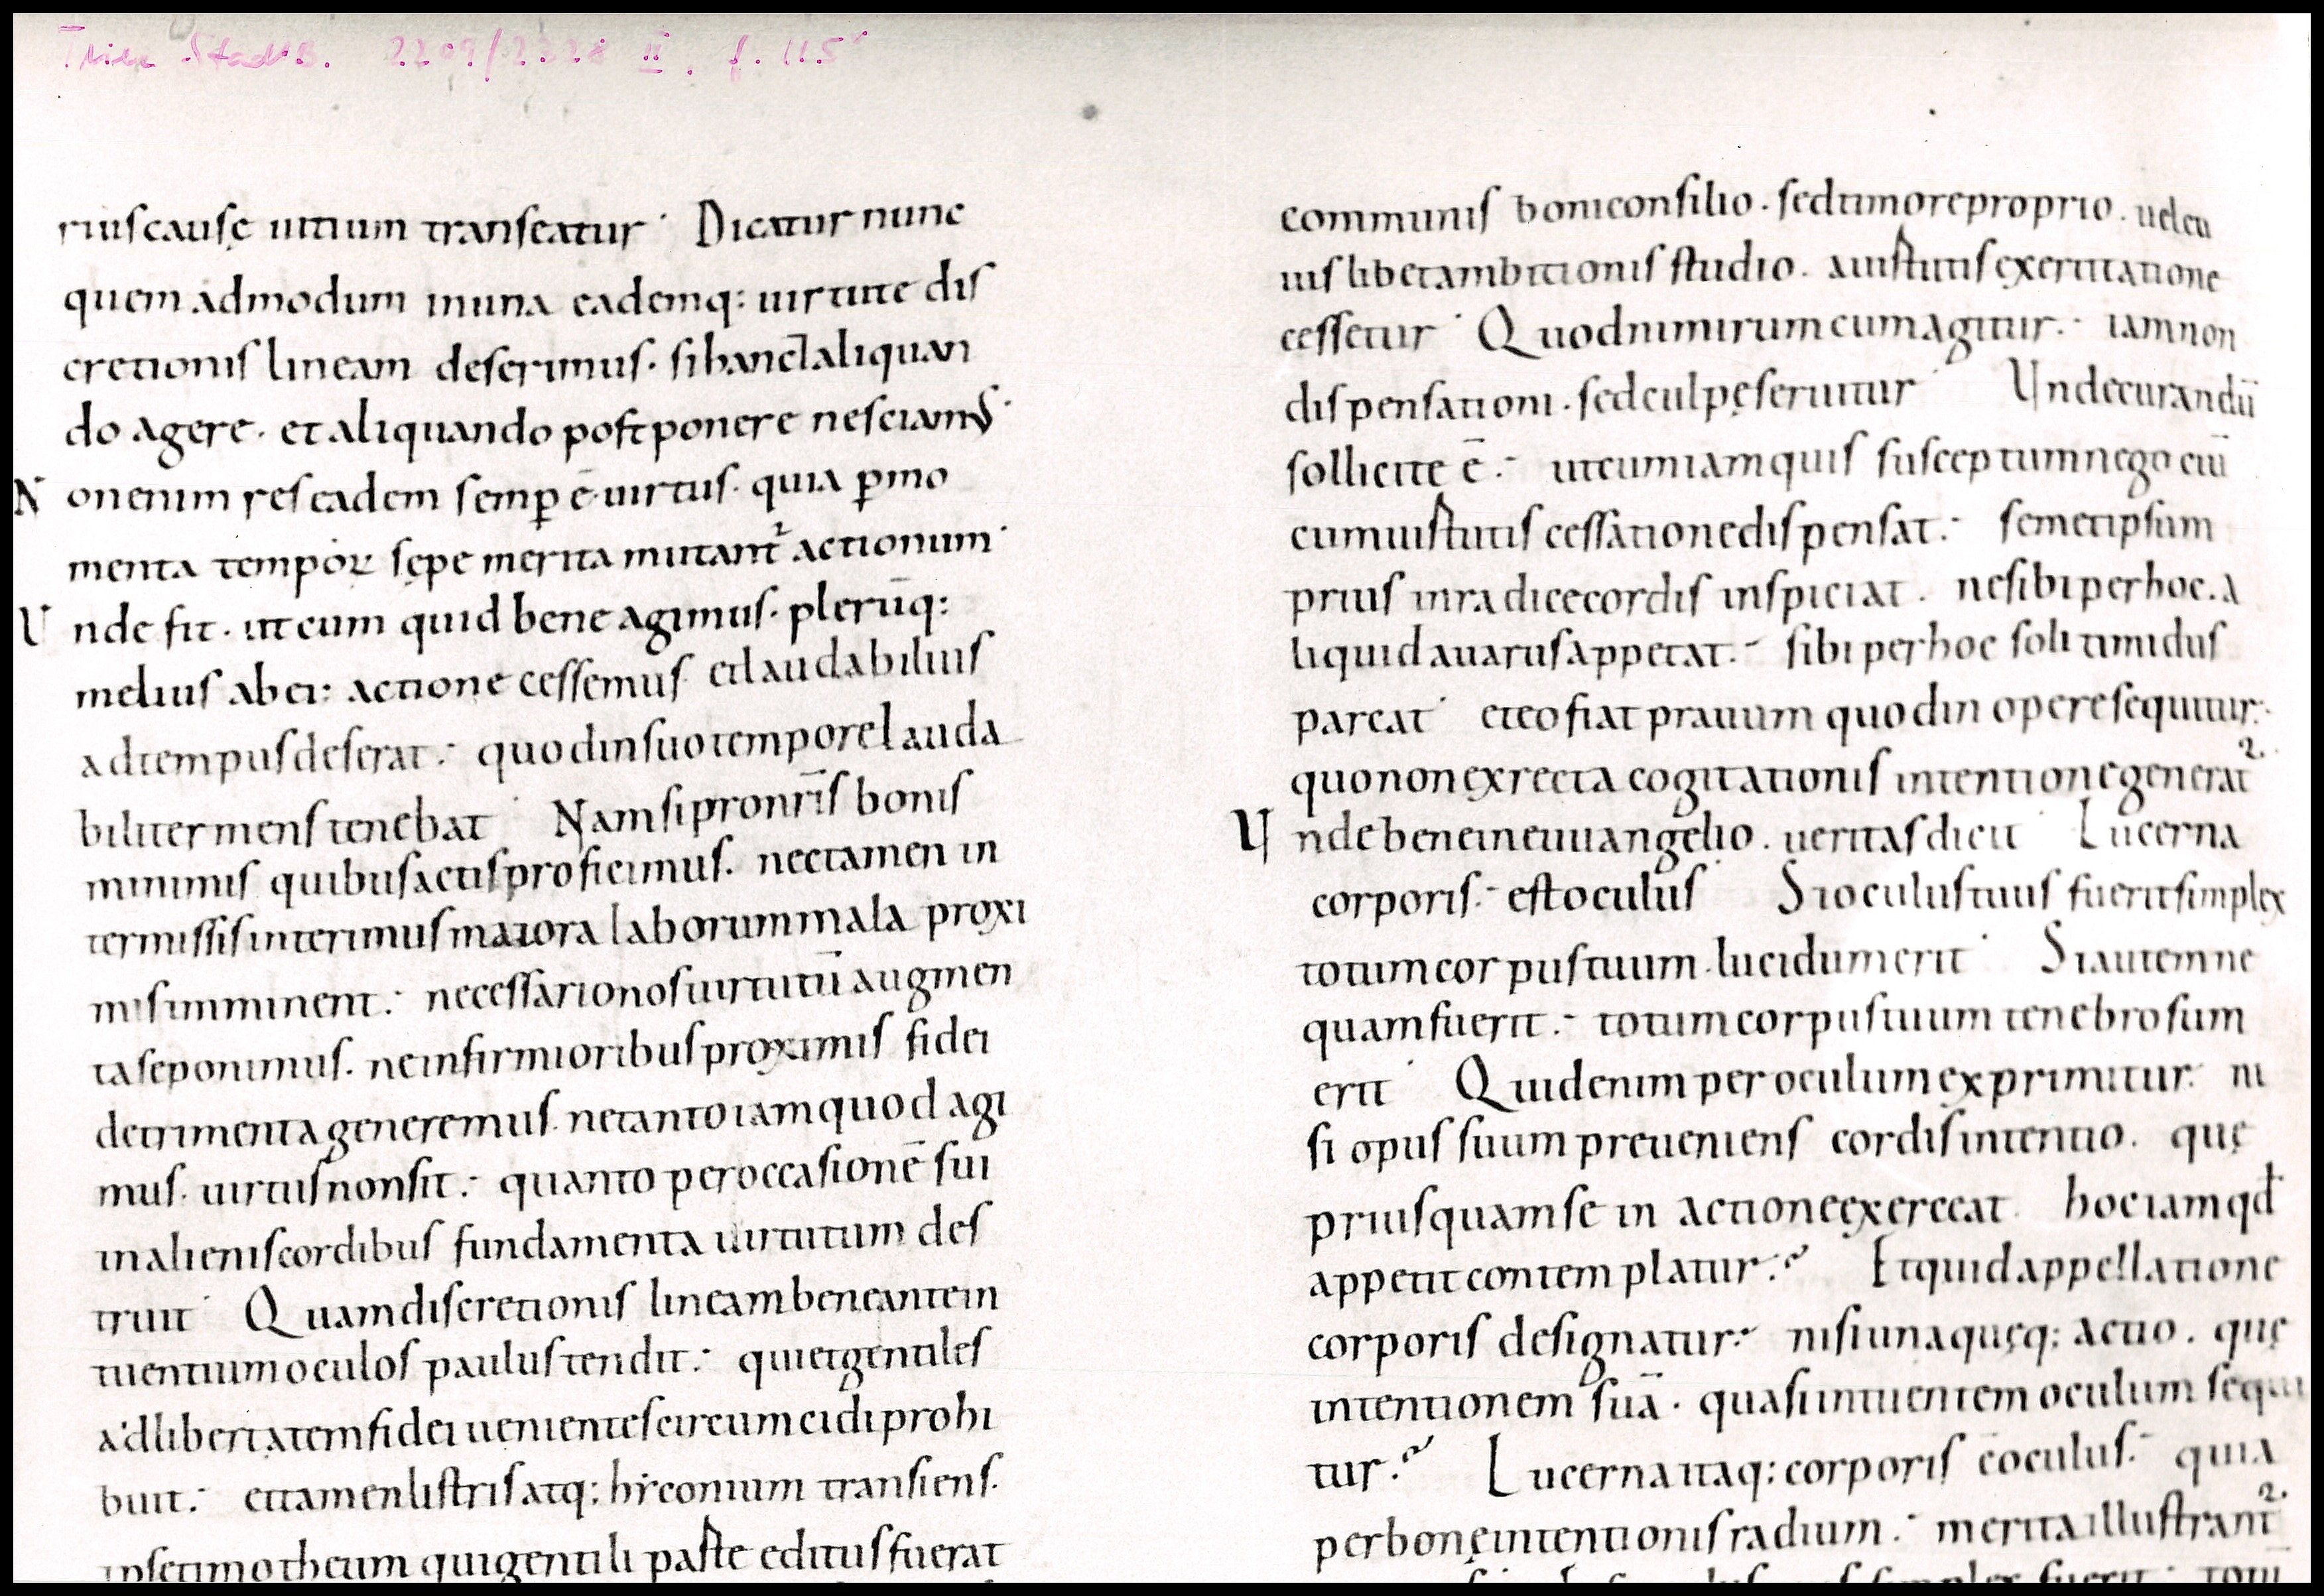 Trier StadtB. 2209/2328 II, f. 115ʳ
riuscausę uitium transeatur· Dicatur nunc
quem admodum inuna eademq: uirtute dis
cretionis lineam deserimus. si hanc & aliquan
do agere. et aliquando postponere nesciam᷒·
N onenim res eadem semp̲ ē uirtus. quia p̲mo
menta tempoꝝ sępe merita mutant᷑ actionum·
U nde fit. ut cum quid bene agimus. plerūq:
melius ab ei: actione cessemus et laudabilius
adtempusdeserat.· quodinsuotemporelauda
biliter menstenebat· Nam sipronr̄is bonis
minimis quibusactisproficimus. nectamen in
termissisinterimusmaiora laborummala proxi
misimminent.· necessarionosuirtutū augmen
taseponimus. neinfirmioribusproximis fidei
detrimentageneremus. netantoiamquod agi
mus. uirtusnonsit.· quanto peroccasionē sui
inalieniscordibus fundamenta uirtutum des
truit· Quamdiscretionis lineambeneantein
tuentiumoculos paulustendit.· quietgentiles
adlibertatemfidei uenientescircumcidiprohi
buit.· ettamenlistrisatq; hyconium transiens.
ipsetimotheum quigentili patre editusfuerat
communis boniconsilio. sedtimoreproprio. uelcu
iuslibetambitionis studio. a iustitiis exercitatione
cessetur· Quodnimirumcumagitur.· iamnon
dispensationi. sedculpęseruitur· Undecurandū
sollicite ē.· utcumiamquis susceptumnegociū
cumiustitiis cessationedispensat.· semetipsum
prius inradicecordis inspiciat. nesibiperhoc. a
liquidauarusappetat.· sibiperhoc soli timidus
pareat· eteofiatprauum quodin operesequitur.·
quononexrecta cogitationis intentionegenerat᷑
U ndebeneineuuangelio. ueritasdicit· Lucerna
corporis.· estoculus· Sioculustuus fueritsimplex
totumcorpustuum. lucidumerit· Siautemne
quamfuerit.· totumcorpustuum tenebrosum
erit· Quidenimperoculumexprimitur.· ni
si opus suum preueniens cordisintentio. quę
priusquamse in actioneexerceat. hociamqđ
appetitcontemplatur.? Etquidappellatione
corporis designatur.· nisiunaquęq; actio. quę
intentionem suā. quasiintuentem oculum sequi
tur.? Lucernaitaq; corporis ē oculus.· quia
perbonęintentionisradium.· meritaillustrant᷑